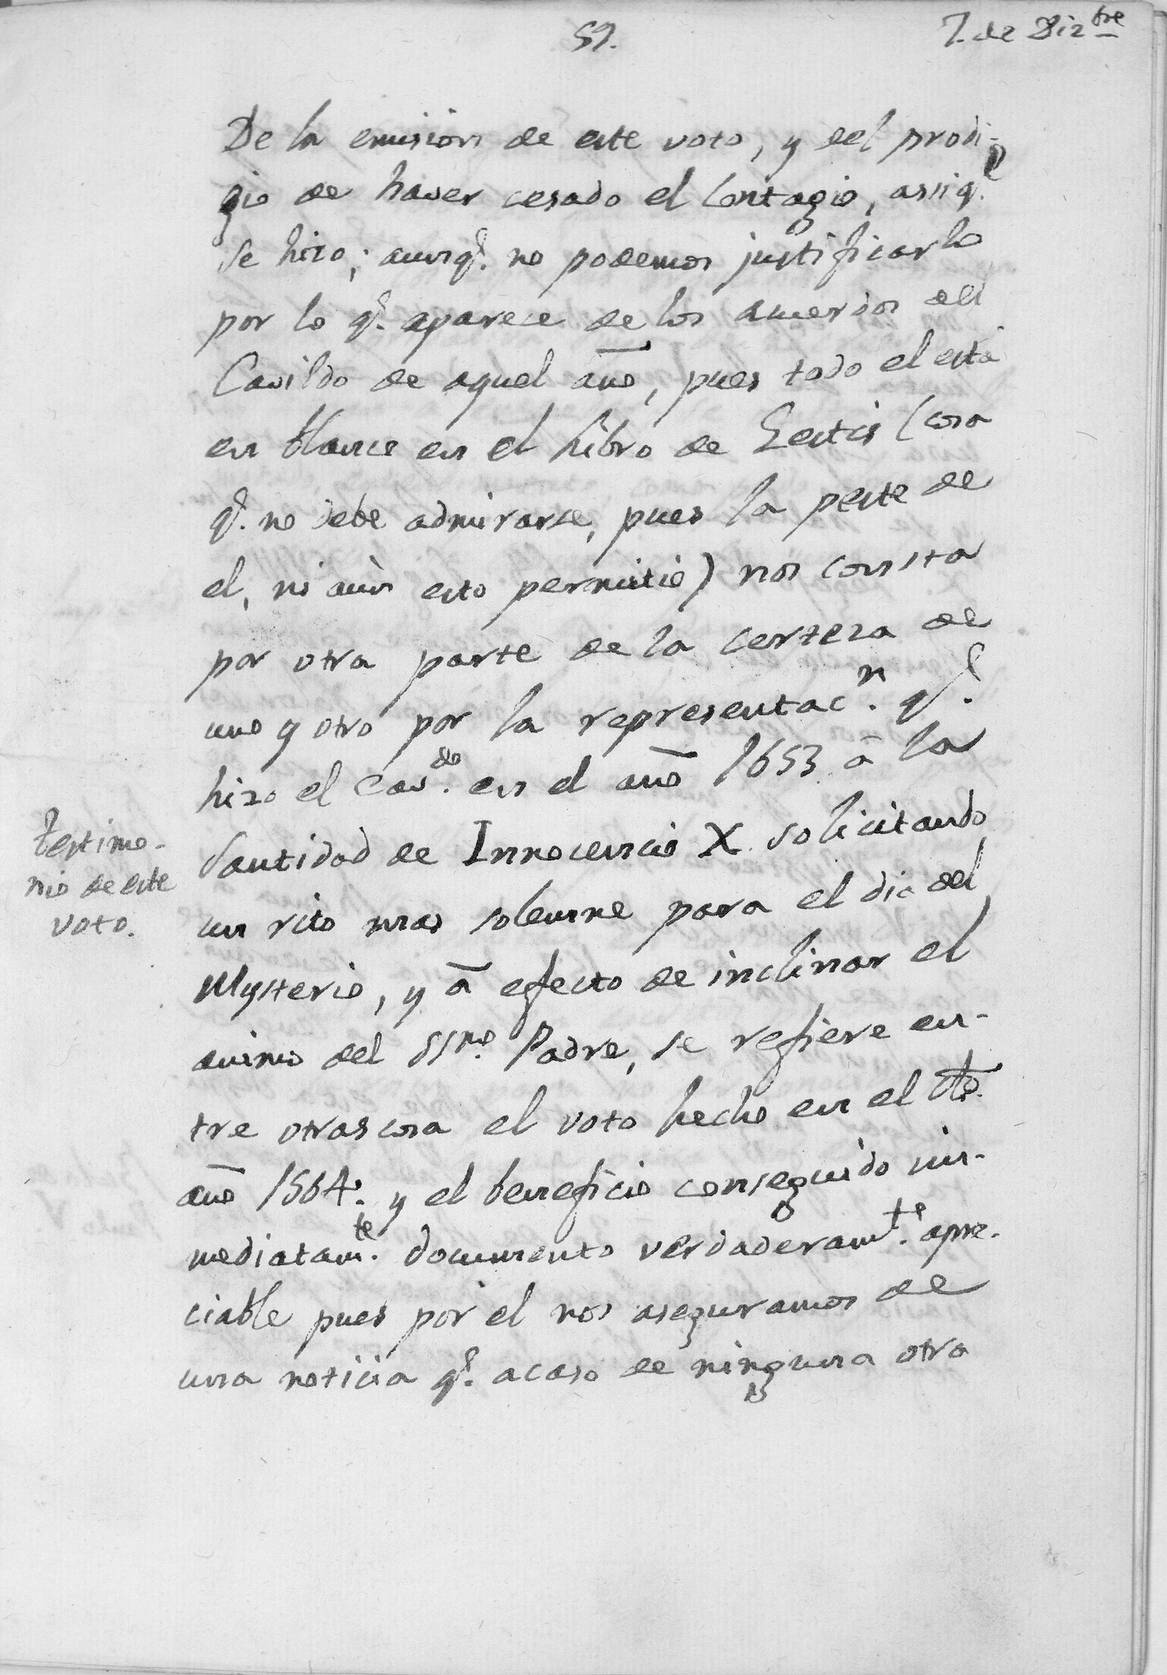 59. 7. de Diz.bre
De la emision de este voto, y del prodi-
gio de haver cesado el Contagio, assi q.e
se hizo; aunq.e no podemos justificarlo
por lo q.e aparece de los acuerdos del
Cavildo de aquel año, pues todo el está
en blanco en el Libro de Gestis (cosa
q.e no debe admirarse, pues la peste de
el, ni aún esto permitió) nos consta
por otra parte de la certeza de
uno y otro por la representac.n q.e
hizo el Cav.do en el año 1653 á la
Santidad de Innocencio X solicitando
un rito mas solemne para el dia del
Mysterio, y á efecto de inclinar el
animo del SS.mo Padre, se refiere en-
tre otras cosa el voto hecho en el dho.
año 1564: y el beneficio conseguido in-
mediatam.te documento verdaderam.te apre-
ciable pues por el nos aseguramos de
una noticia q.e acaso de ninguna otra
Testimo-
nio de este
voto.